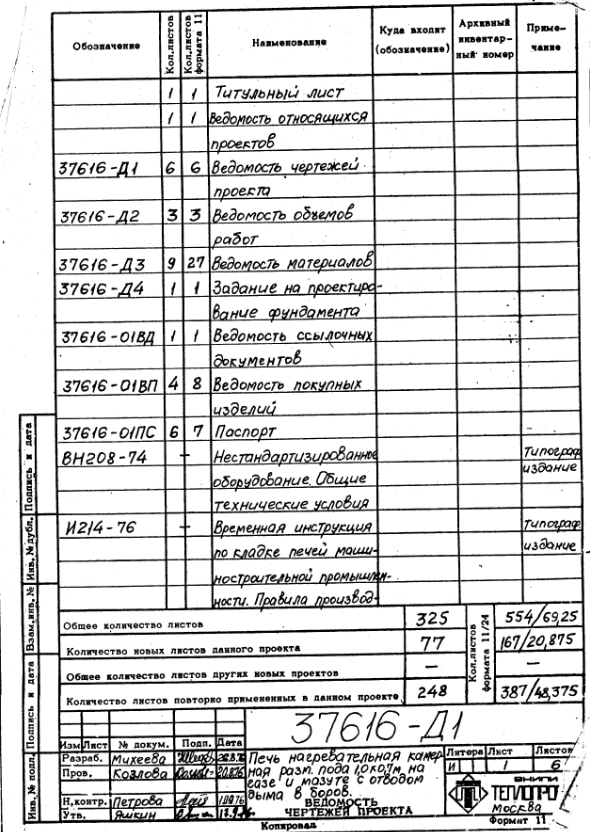 Обозначение Кол.листов Кол.листов формата 11 Наименование Куда входит (обозначение) Архивный инвентар- ный номер Приме- чание
1 1 Титульный лист
1 1 Ведомость относящихся
проектов
37616-Д1 6 6 Ведомость чертежей
проекта
37616-Д2 3 3 Ведомость объемов
работ
37616-Д3 9 27 Ведомость материалов
37616-Д4 1 1 Задание на проектиро-
вание фундамента
37616-01ВД 1 1 Ведомость ссылочных
документов
37616-01ВП 4 8 Ведомость покупных
изделий
37616-01ПС 6 7 Паспорт
ВН208-74 + Нестандартизированное Типограф
оборудование. Общие издание
технические условия
И214-76 + Временная инструкция Типограф
по кладке печей маши- издание
ностроительной промышлен-
ности. Правила производ-
Общее количество листов 325 Кол.листов формата 11/24 554/69,25
Количество новых листов данного проекта 77 167/20,875
Общее количество листов других новых проектов — —
Количество листов повторно примененных в данном проекте 248 387/48,375
37616-Д1
Изм Лист № докум. Подп. Дата
Разраб. Михеева
Пров. Козлова
Н.контр. Петрова
Утв. Яшкин
Печь нагревательная камер-
ная разм. пода 1,0х0,7м на
газе и мазуте с отводом
дыма в боров.
ВЕДОМОСТЬ
ЧЕРТЕЖЕЙ ПРОЕКТА
Литера Лист Листов
И 1 6
ВНИПИ
ТЕПЛОПРО
Москва
Копировал Формат 11
Инв. № подл. Подпись и дата Взам.инв. № Инв. № дубл. Подпись и дата